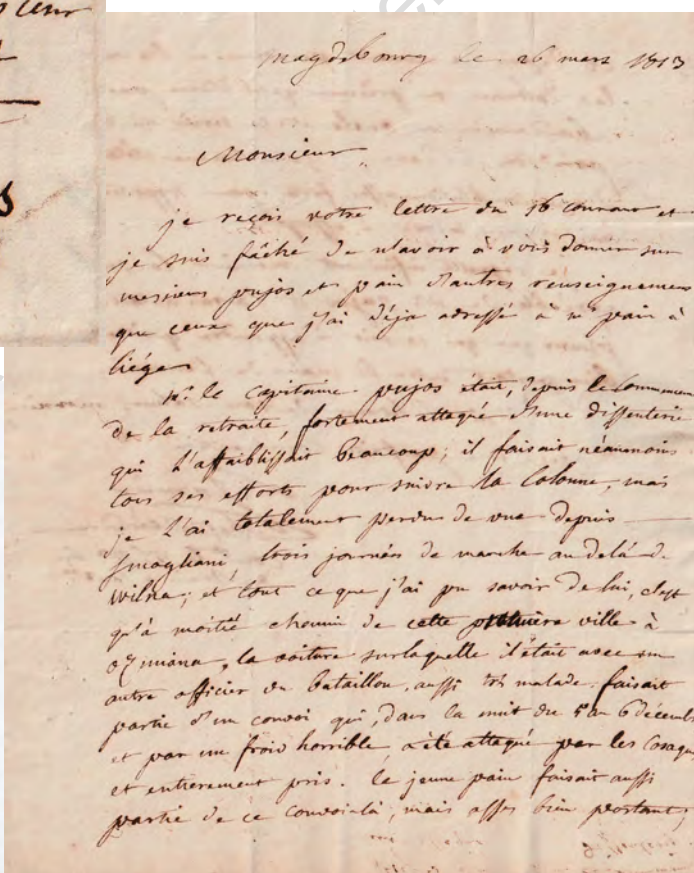 magdebourg le 26 mars 1813
Monsieur
je reçois votre lettre du 16 courant et
je suis fâché de n'avoir à vous donner sur
messieurs pujos et pain d'autres renseignemens
que ceux que j'ai déja adressé à mr pain à
liége
mr. le capitaine pujos était, depuis le commencem
de la retraite, fortement attaqué d'une dissenterie
qui l'affaiblissait beaucoup; il faisait néanmoins
tous ses efforts pour suivre la Colonne, mais
je l'ai totalement perdu de vue depuis
Smogliani, trois journées de marche au delà de
Wilna; et tout ce que j'ai pu savoir de lui, c'est
qu'à moitié chemin de cette première ville à
ozmiana, la voiture sur laquelle il était avec un
autre officier du bataillon, aussi très malade, faisait
partie d'un convoi qui, dans la nuit du 5 au 6 décemb
et par un froid horrible a été attaqué par les Cosaqu
et entierement pris. le jeune pain faisait aussi
partie de ce convoi-là, mais assez bien portant;